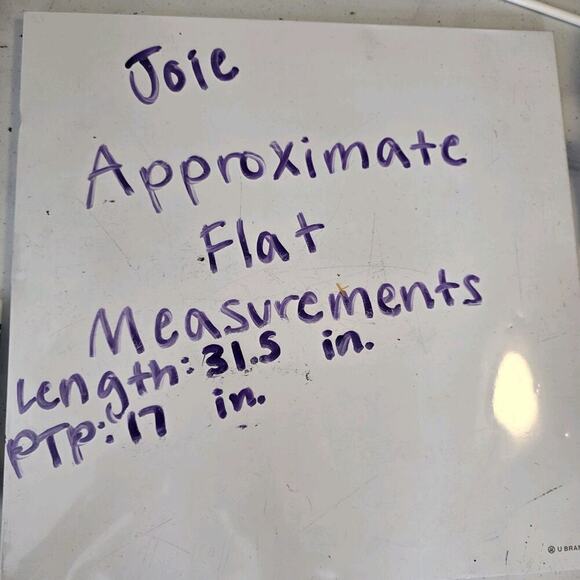 Joie
Approximate
Flat
Measurements
Length: 31.5 in.
PTP: 17 in.